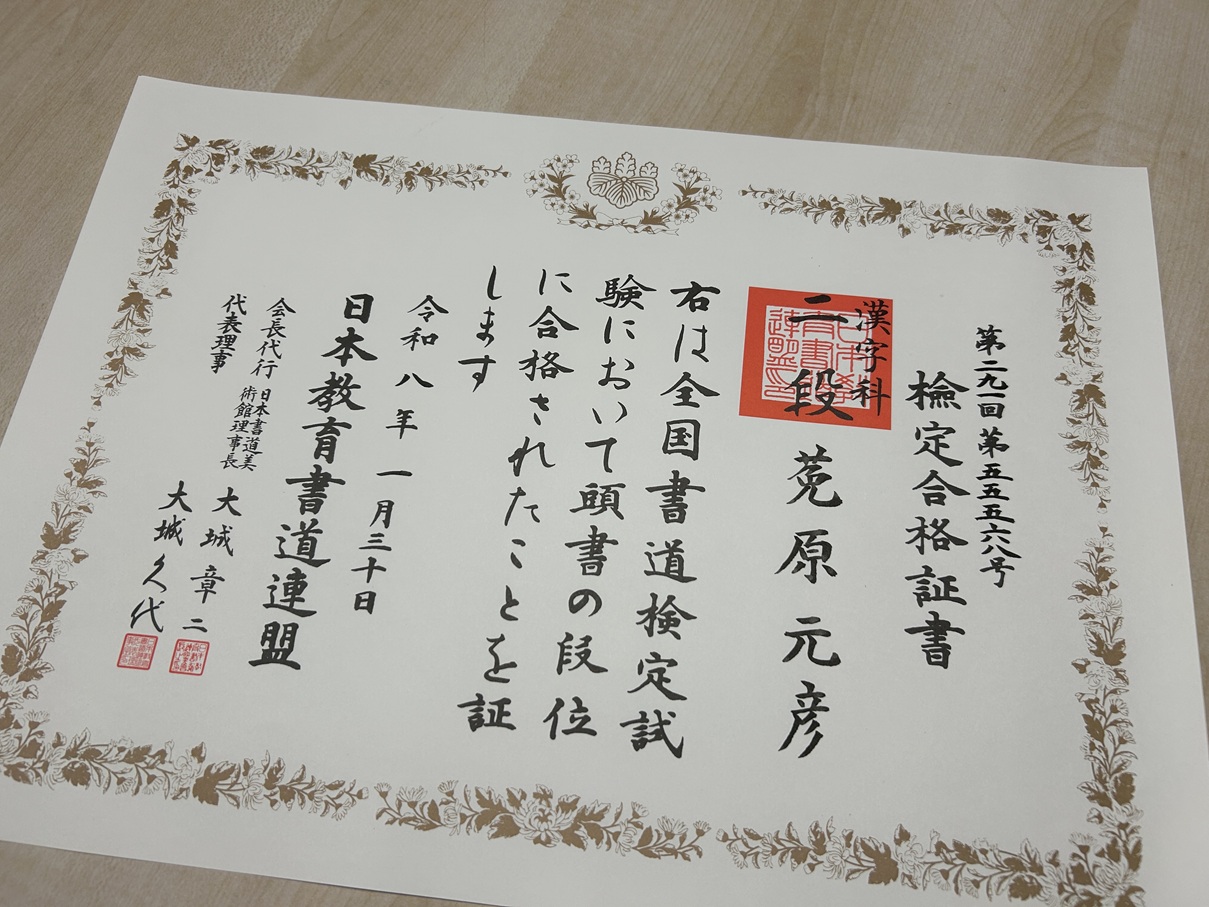 第二九一回 第五五五六八号
検定合格証書
漢字科
二段 莬原元彦
右は全国書道検定試
験において頭書の段位
に合格されたことを証
します
令和八年一月三十日
日本教育書道連盟
会長代行 日本書道美術館理事長 大城章二
代表理事 大城久代